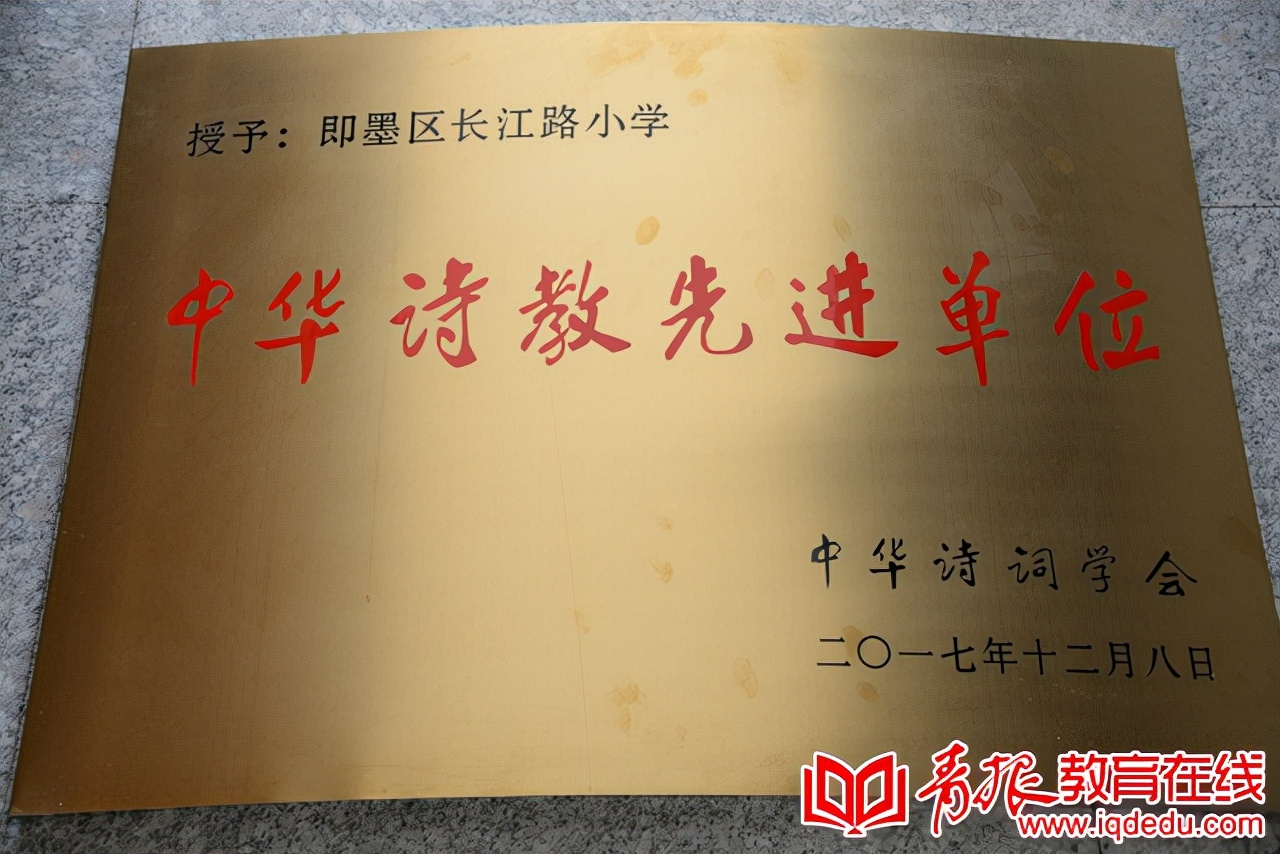 授予：即墨区长江路小学
中华诗教先进单位
中华诗词学会
二〇一七年十二月八日
青报教育在线
www.iqdedu.com